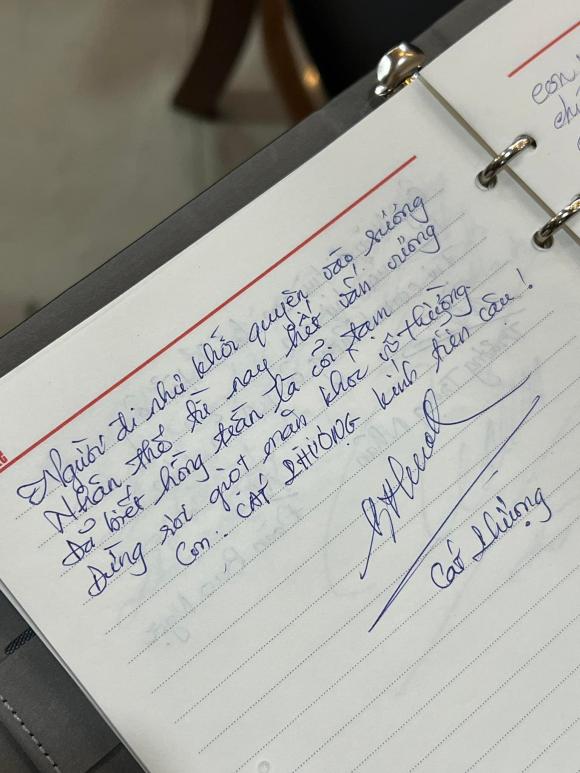 Người đi như khói quyện vào sương
Nhân thế từ nay hết vấn vương
Đã biết hồng trần là cõi tạm
Đừng rơi giọt mặn khóc vô thường.
Con.. CÁT PHƯỢNG kính tiễn cậu!
Cát Phượng
con